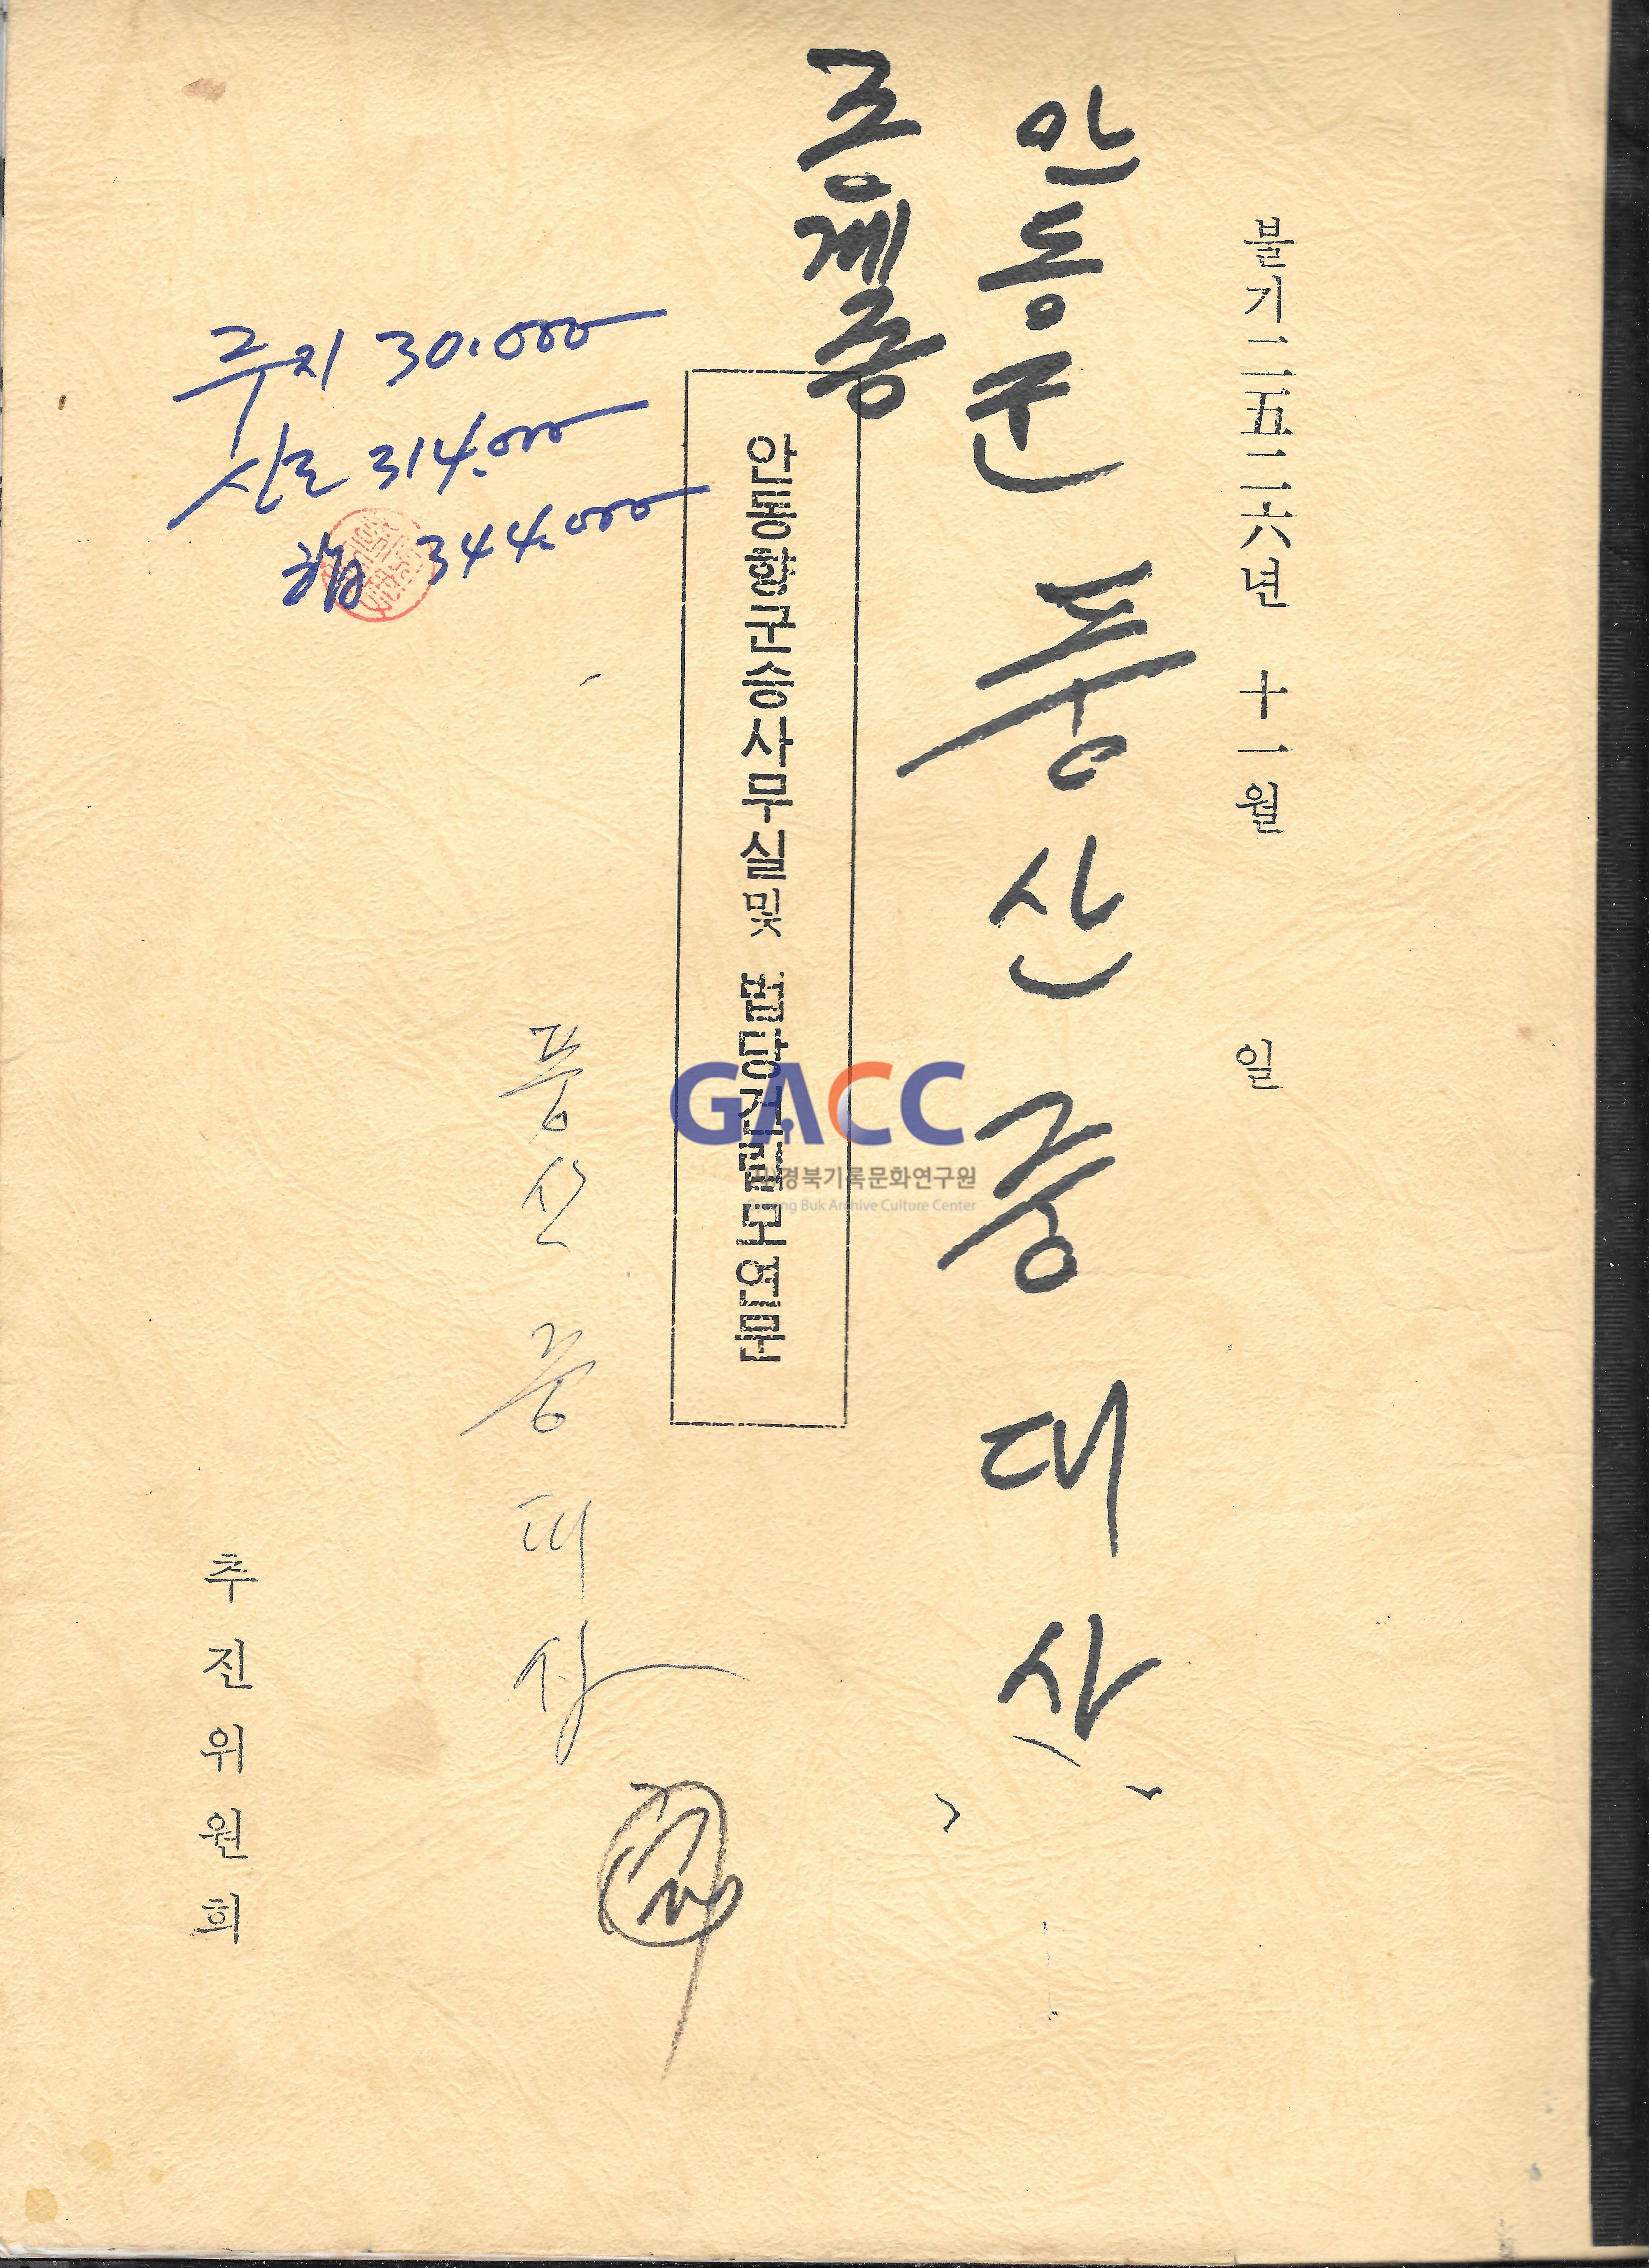 불기 二五二六년 十一월 일
안동군 풍산 중대사
조계종
안동학군승사무실 및 법당건립모연문
풍산 중대사
주지 30.000
신도 314.000
344.000
추진위원회
GACC
경북기록문화연구원
Buk Archive Culture Center